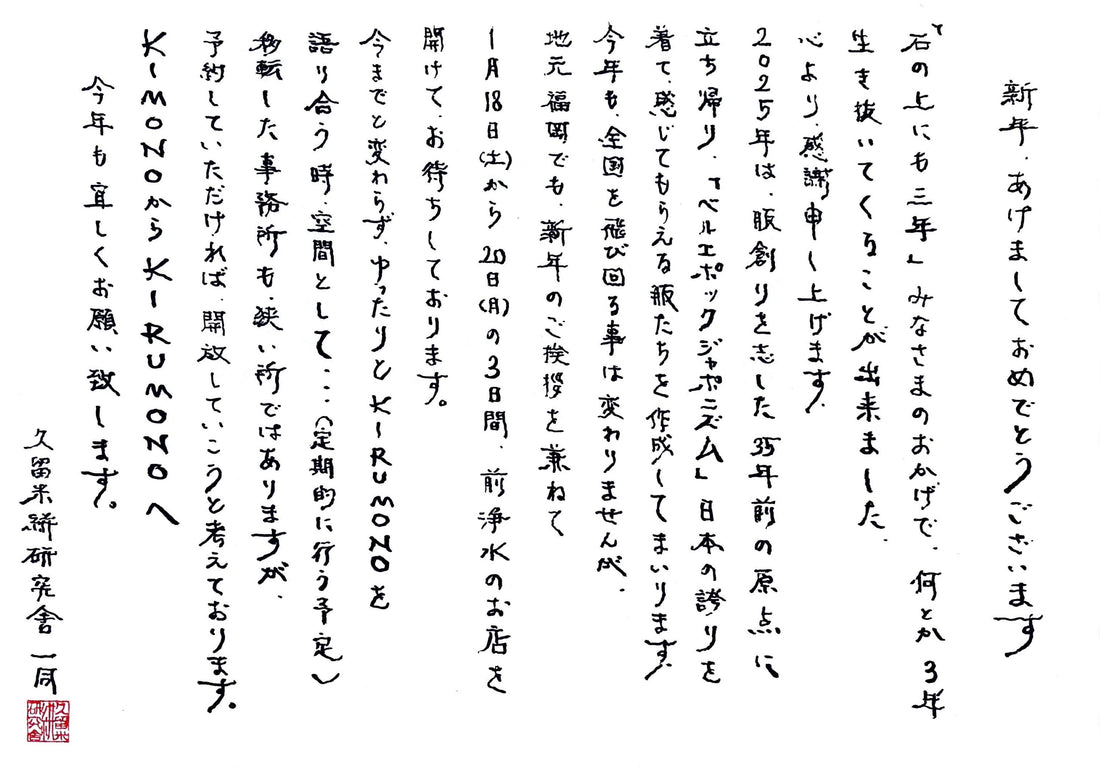 新年、あけましておめでとうございます
「石の上にも三年」みなさまのおかげで、何とか3年
生き抜いてくることが出来ました、
心より、感謝申し上げます。
2025年は、服創りを志した35年前の原点に
立ち帰り、「ベルエポックジャポニズム」日本の誇りを
着て、感じてもらえる服たちを作成してまいります。
今年も、全国を飛び回る事は変わりませんが、
地元福岡でも、新年のご挨拶を兼ねて
1月18日(土)から20日(月)の3日間、前浄水のお店を
開けて、お待ちしております。
今までと変わらず、ゆったりとKIRUMONOを
語り合う時、空間として、、、(定期的に行う予定)
移転した事務所も、狭い所ではありますが、
予約していただければ、開放していこうと考えております。
KIMONOからKIRUMONOへ
今年も宜しくお願い致します。
久留米絣研究舎一同
久留米絣研究舎